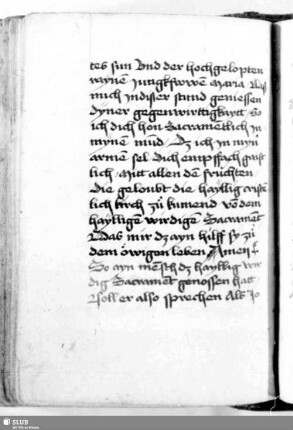 tes sun Vnd der hochgelopten
raynē Jungkfrwwē Maria Las
mich indiser stund geniessen
dyner gegenwirttigkaytt So
ich dich hon Sacramētlich jn
mynē mūd Dz ich in myn
armen sel Dich empfach gaist
lich Mit allen dē früchten
Die geloubt die hayllig criste
lich kirch zů kumend vō dem
haylligē wirdigē Sacramēt
Das mir dz ayn hilff sy zů
dem öwigen leben Amen
So ayn mēsch dz hayllig wir
dig Sacramēt genossen hatt
soll er also sprechen Als Jo
SLUB